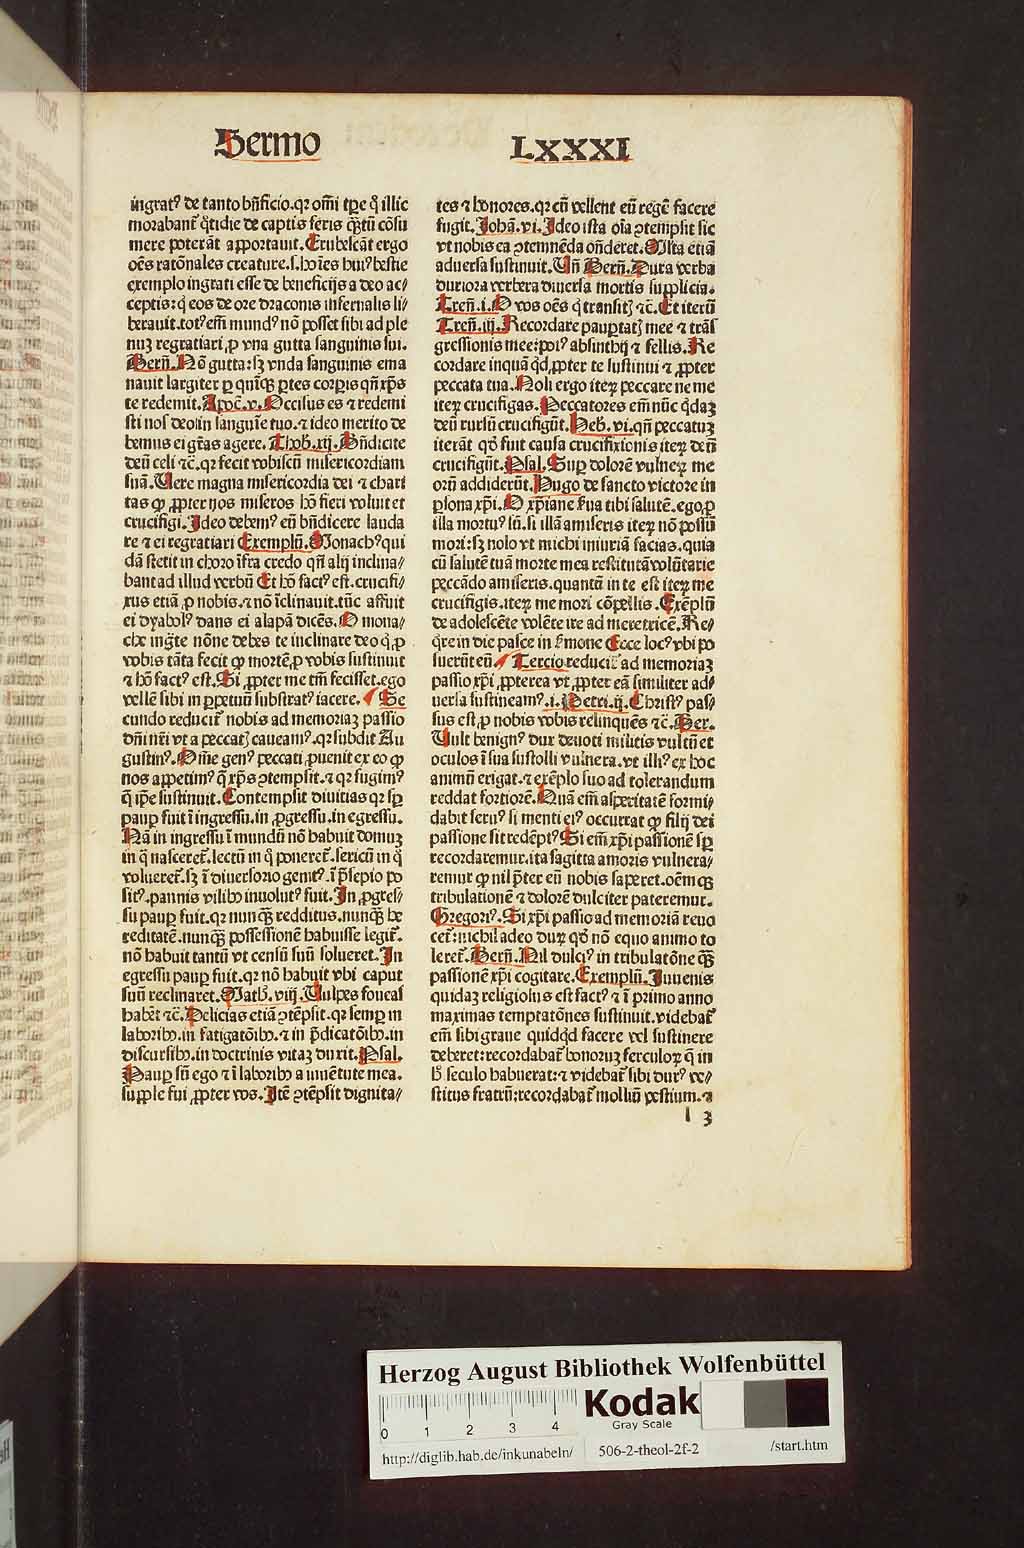 Sermo LXXXI
ingratꝰ de tanto bñficio.qꝛ om̄i tꝑe qͥ illic
morabant̃ qͦtidie de captis feris qͣꝫtū cōsu
mere poterāt apportauit. Erubescāt ergo
oēs ratōnales creature.s.hoīes huiꝰ bestie
exemplo ingrati esse de beneficijs a deo ac⸗
ceptis:qͥ eos de ore draconis infernalis li⸗
berauit.totꝰ em̄ mundꝰ nō posset sibi ad ple
nuꝫ regratiari ꝓ vna gutta sanguinis sui.
Bern̄. Nō gutta:sꝫ vnda sanguinis ema
nauit largiter ꝑ quīqꝫ ꝑtes corꝑis qn̄ xp̄s
te redemit. Apoc̄.v. Occisus es ⁊ redemi
sti nos deo in sanguīe tuo. ⁊ ideo merito de
bemus ei gr̄as agere. Thob̄.xij. Bn̄dicite
deū celi ⁊c̄.qꝛ fecit vobiscū misericordiam
suā. Uere magna misericordia dei ⁊ chari
tas ꝙ ꝓpter nos miseros hō fieri voluit et
crucifigi. Ideo debemꝰ eū bn̄dicere lauda
re ⁊ ei regratiari Exemplū. Monachꝰ qui
dā stetit in choro īfra credo qn̄ alij inclina⸗
bant ad illud verbū Et hō factꝰ est. crucifi⸗
xus etiā ꝓ nobis. ⁊ nō īclinauit.tūc affuit
ei dyabolꝰ dans ei alapā dicēs. O mona⸗
che ingr̄te nōne debes te inclinare deo qͥ ꝓ
vobis tāta fecit ꝙ mortē ꝓ vobis sustinuit
⁊ hō factꝰ est. Si ꝓpter me tm̄ fecisset.ego
vellē sibi in ꝑpetuū substratꝰ iacere. Se
cundo reducit̃ nobis ad memoriaꝫ passio
dn̄i nr̄i vt a peccatꝭ caueamꝰ.qꝛ subdit Au
gustinꝰ. Om̄e genꝰ peccati ꝓuenit ex eo ꝙ
nos appetimꝰ q̄ xp̄s ↄtempsit.⁊ qꝛ fugimꝰ
q̄ ip̄e sustinuit. Contempsit diuitias qꝛ sꝑ
pauꝑ fuit ī ingressu.in ꝓgressu.in egressu.
Nā in ingressu ī mundū nō habuit domuꝫ
in q̄ nasceret̃.lectū in qͦ poneret̃.sericū in qͦ
volueret̃.sꝫ ī diuersorio genitꝰ.ī p̄sepio po
sitꝰ.pannis vilibꝫ inuolutꝰ fuit. In ꝓgres⸗
su pauꝑ fuit.qꝛ nunqͣꝫ redditus.nunqͣꝫ he
reditatē.nunqͣꝫ possessionē habuisse legit̃.
nō habuit tantū vt censū suū solueret. In
egressu pauꝑ fuit.qꝛ nō habuit vbi caput
suū reclinaret. Math̄.viij. Uulpes foueas
habēt ⁊c̄. Delicias etiā ↄtēpsit.qꝛ semꝑ in
laboribꝫ.in fatigatōibꝫ.⁊ in p̄dicatōibꝫ.in
discursibꝫ.in doctrinis vitaꝫ duxit. Psal.
Pauꝑ sū ego ⁊ ī laboribꝫ a iuuētute mea.
supple fui ꝓpter vos. Itē ↄtēpsit dignita⸗
tes ⁊ honores.qꝛ cū vellent eū regē facere
fugit. Johā.vi. Ideo ista oīa ↄtempsit sic
vt nobis ea ↄtemnēda on̄deret. Ista etiā
aduersa sustinuit. Un̄ Bern̄. Dura verba
duriora verbera diuersa mortis supplicia.
Tren̄.i. O vos oēs qͥ transitꝭ ⁊c̄. Et iterū
Tren̄.iij. Recordare pauꝑtatꝭ mee ⁊ trās
gressionis mee:poiꝰ absinthij ⁊ fellis. Re
cordare inquā qͥd ꝓpter te sustinui ⁊ ꝓpter
peccata tua. Noli ergo iteꝝ peccare ne me
iteꝝ crucifigas. Peccatores em̄ nūc qͥdaꝫ
deū rursū crucifigūt. Heb̄.vi. qn̄ peccatuꝫ
iterāt qd̄ fuit causa crucifixionis iteꝝ deū
crucifigūt. Psal. Suꝑ dolorē vulneꝝ me
oꝝ addiderūt. Hugo de sancto victore in
ꝑsona xp̄i. O xp̄iane ẜua tibi salutē.ego ꝓ
illa mortuꝰ sū.si illā amiseris iteꝝ nō possū
mori:sꝫ nolo vt michi iniuriā facias.quia
cū salutē tuā morte mea restitutā volūtarie
peccādo amiseris.quantū in te est iteꝝ me
crucifigis.iteꝝ me mori cōpellis. Exēplū
de adolescēte volēte ire ad meretricē. Re⸗
qͥre in die pasce in ẜmone Ecce locꝰ vbi po
suerūt eū Tercio reducit̃ ad memoriaꝫ
passio xp̄i ꝓpterea vt ꝓpter eā similiter ad⸗
uersa sustineamꝰ.i. Petri.ij. Christꝰ pas⸗
sus est ꝓ nobis vobis relinquēs ⁊c̄. Ber.
Uult benignꝰ dux deuoti militis vultū et
oculos ī sua sustolli vulnera.vt illiꝰ ex hoc
animū erigat.⁊ exēplo suo ad tolerandum
reddat fortiorē. Quā em̄ asperitatē formi⸗
dabit seruꝰ si menti eiꝰ occurrat ꝙ filij dei
passione sit redēptꝰ. Si em̄ xp̄i passionē sꝑ
recordaremur.ita sagitta amoris vulnera⸗
remur ꝙ nil p̄ter eū nobis saperet.oēm qꝫ
tribulationē ⁊ dolorē dulciter pateremur.
Gregoriꝰ. Si xp̄i passio ad memoriā reuo
cet̃:nichil adeo duꝝ qd̄ nō equo animo to
leret̃. Bern̄. Nil dulciꝰ in tribulatōne qͣꝫ
passionē xp̄i cogitare. Exemplū. Juuenis
quidaꝫ religiosus est factꝰ ⁊ ī primo anno
maximas temptatōnes sustinuit.videbat̃
em̄ sibi graue quidqͥd facere vel sustinere
deberet:recordabat̃ bonoꝝ ferculoꝝ q̄ in
hͦ seculo habuerat:⁊ videbat̃ sibi durꝰ ve⸗
stitus fratrū:recordabat̃ molliū vestium.⁊
l 3
Herzog August Bibliothek Wolfenbüttel
0 1 2 3 4
Kodak
Gray Scale
http://diglib.hab.de/inkunabeln/ 506-2-theol-2f-2 /start.htm